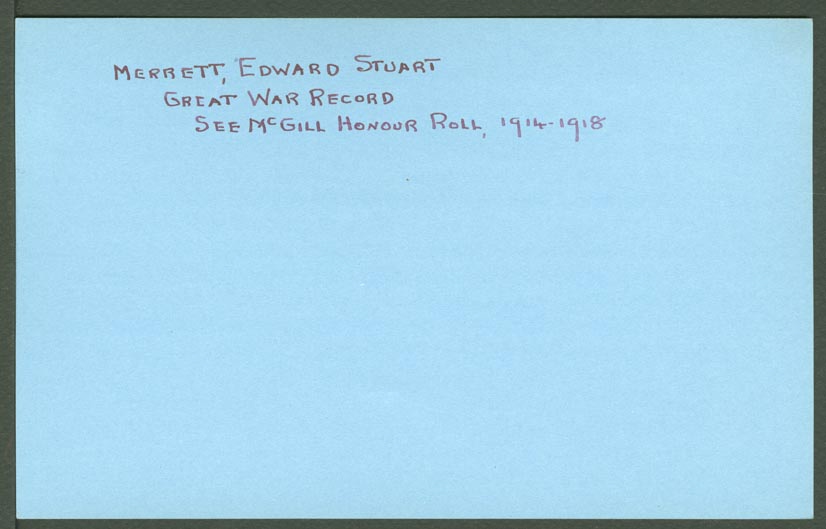 MERRETT, EDWARD STUART
GREAT WAR RECORD
SEE McGILL HONOUR ROLL, 1914-1918